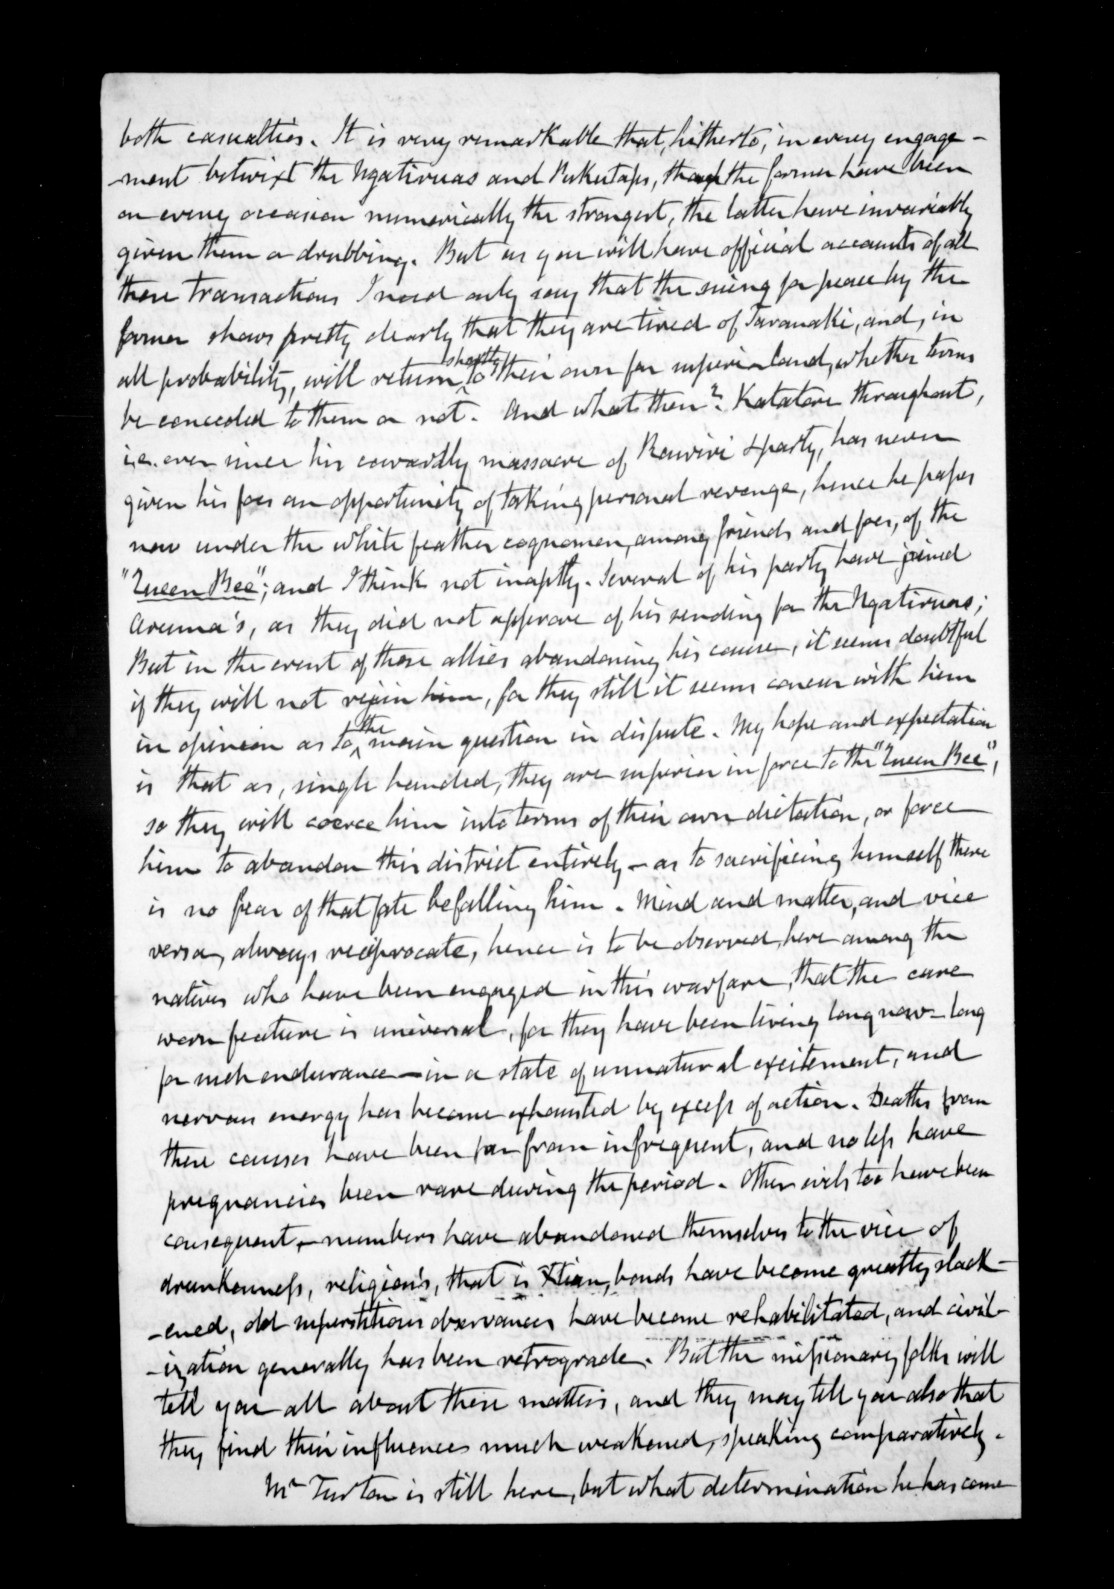 both casualties. It is very remarkable that, hitherto, in every engage-
-ment betwixt the Ngatiruas and Puketaps, though the former have been
on every occasion numerically the strongest, the latter have invariably
given them a drubbing. But as you will have official accounts of all
these transactions I need only say that the suing for peace by the
former shows pretty clearly that they are tired of Taranaki, and, in
all probability, will return shortly to their own far superior land, whether terms
be conceded to them or not. And what then? Katatore throughout,
i.e. ever since his cowardly massacre of Rawiri & party, has never
given his foes an opportunity of taking personal revenge, hence he passes
now under the white feather cognomen, among friends and foes, of the
"Queen Bee"; and I think not inaptly. Several of his party have joined
Arama's, as they did not approve of his sending for the Ngatiruas;
But in the event of these allies abandoning his cause, it seems doubtful
if they will not rejoin him, for they still it seems concur with him
in opinion as to the main question in dispute. My hope and expectation
is that as, single handed, they are superior in force to the "Queen Bee",
so they will coerce him into terms of their own dictation, or force
him to abandon this district entirely – as to sacrificing himself there
is no fear of that fate befalling him. Mind and matter, and vice
versa, always reciprocate, hence is to be observed, here among the
natives who have been engaged in this warfare, that the care
worn feature is universal, for they have been living long now – long
for such endurance – in a state of unnatural excitement, and
nervous energy has become exhausted by excess of action. Deaths from
these causes have been far from infrequent, and no less have
pregnancies been rare during the period. Other evils too have been
consequent – numbers have abandoned themselves to the vice of
drunkenness, religion's, that is Xtian, bonds have become greatly slack-
-ened, old superstitious observances have become rehabilitated, and civil-
-ization generally has been retrograde. But the missionary folks will
tell you all about these matters, and they may tell you also that
they find their influences much weakened, speaking comparatively.
Mr Turton is still here, but what determination he has come